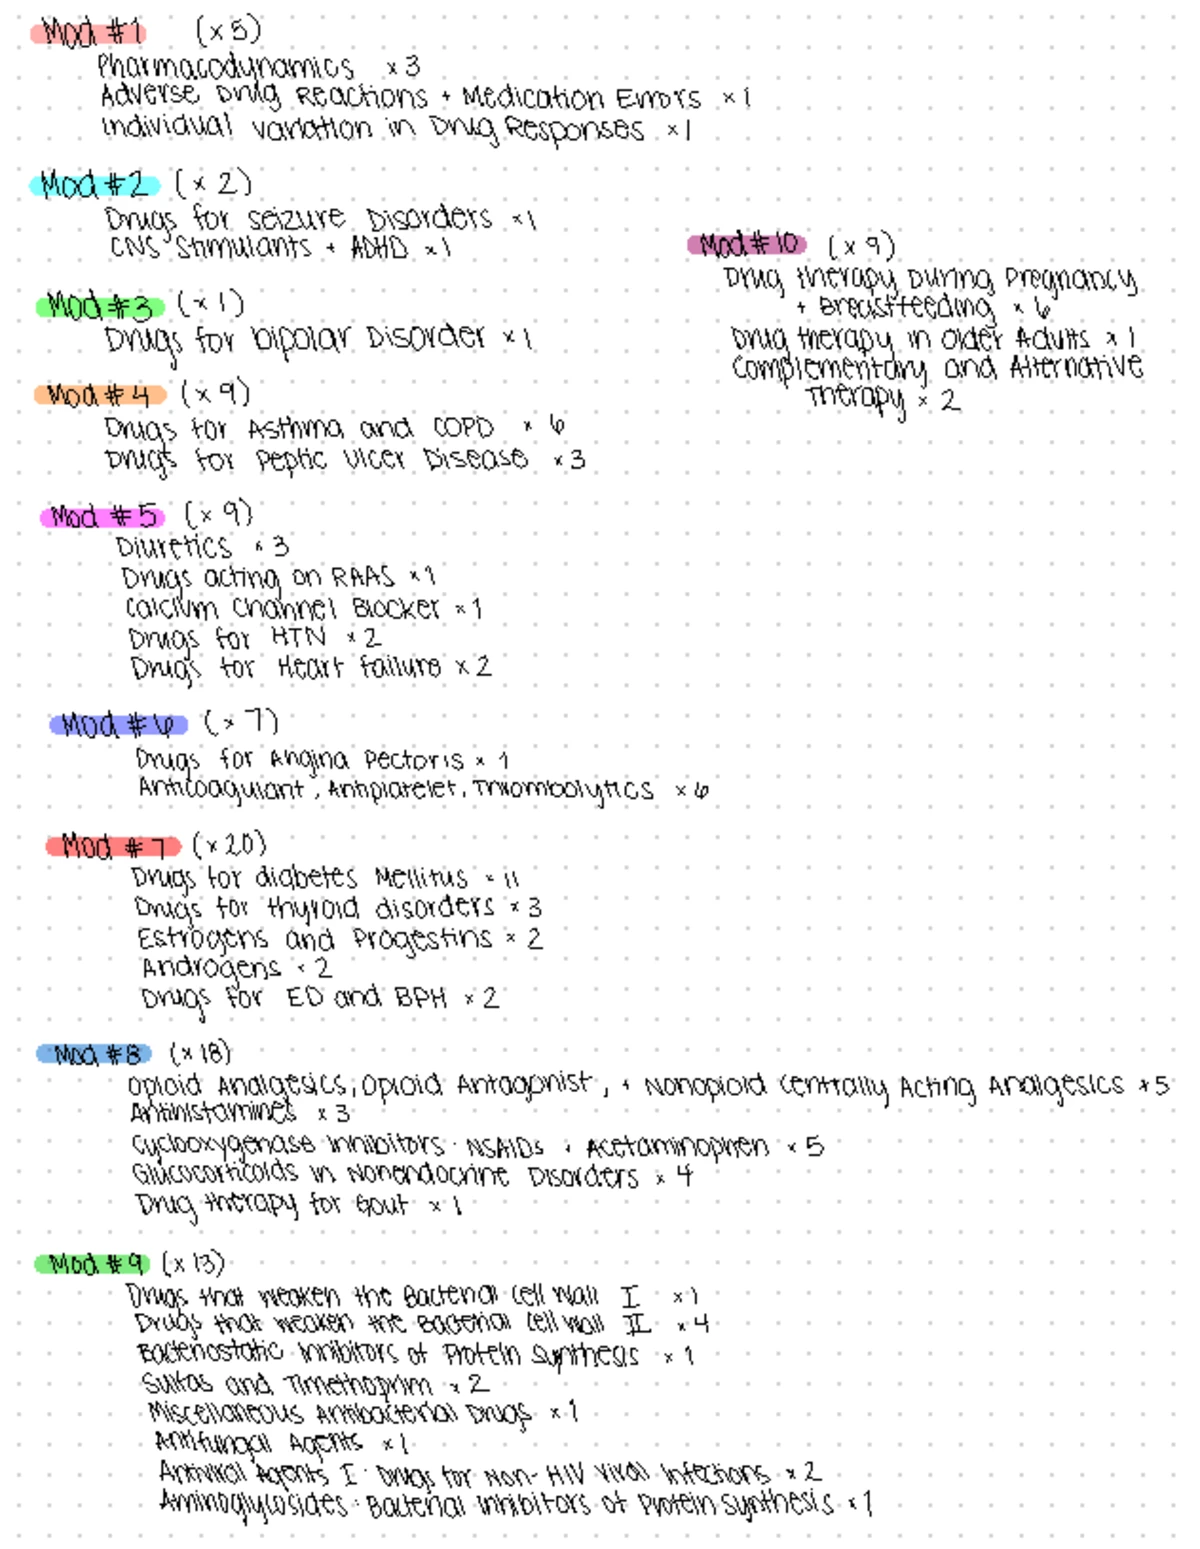 Mod #1 (x5)
Pharmacodynamics x3
Adverse Drug Reactions + Medication Errors x1
Individual variation in Drug Responses x1
Mod #2 (x2)
Drugs for seizure Disorders x1
CNS Stimulants + ADHD x1
Mod #3 (x1)
Drugs for bipolar Disorder x1
Mod #4 (x9)
Drugs for Asthma and COPD x6
Drugs for Peptic Ulcer Disease x3
Mod #5 (x9)
Diuretics x3
Drugs acting on RAAS x1
Calcium Channel Blocker x1
Drugs for HTN x2
Drugs for Heart failure x2
Mod #6 (x7)
Drugs for Angina Pectoris x1
Anticoagulant, Antiplatelet, Thrombolytics x6
Mod #7 (x20)
Drugs for diabetes Mellitus x11
Drugs for thyroid disorders x3
Estrogens and Progestins x2
Androgens x2
Drugs for ED and BPH x2
Mod #8 (x18)
Opioid Analgesics, Opioid Antagonist, + Nonopioid Centrally Acting Analgesics x5
Antihistamines x3
Cyclooxygenase Inhibitors: NSAIDs + Acetaminophen x5
Glucocorticoids in Nonendocrine Disorders x4
Drug therapy for Gout x1
Mod #9 (x13)
Drugs that weaken the Bacterial Cell Wall I x1
Drugs that weaken the Bacterial Cell Wall II x4
Bacteriostatic Inhibitors of Protein Synthesis x1
Sulfas and Timethoprim x2
Miscellaneous Antibacterial Drugs x1
Antifungal Agents x1
Antiviral Agents I: Drugs for Non-HIV Viral Infections x2
Aminoglycosides: Bacterial Inhibitors of Protein Synthesis x1
Mod #10 (x9)
Drug therapy During Pregnancy
+ Breastfeeding x6
Drug therapy in older Adults x1
Complementary and Alternative
Therapy x2